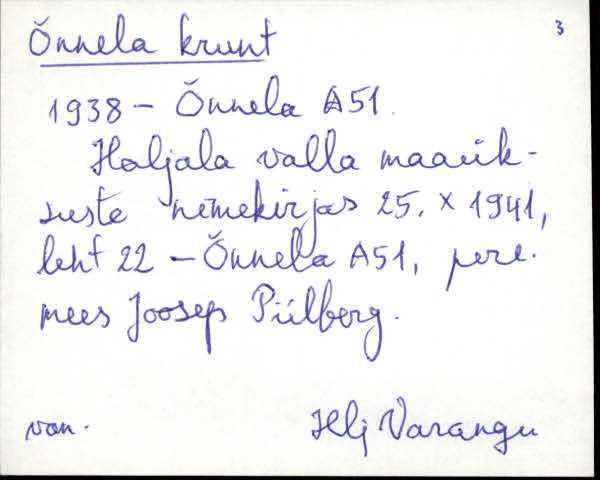 Õnnela krunt 3
1938 – Õnnela A51.
Haljala valla maaük-
suste nimekirjas 25. X 1941,
leht 22 – Õnnela A51, pere-
mees Joosep Piilberg.
van. Hlj Varangu